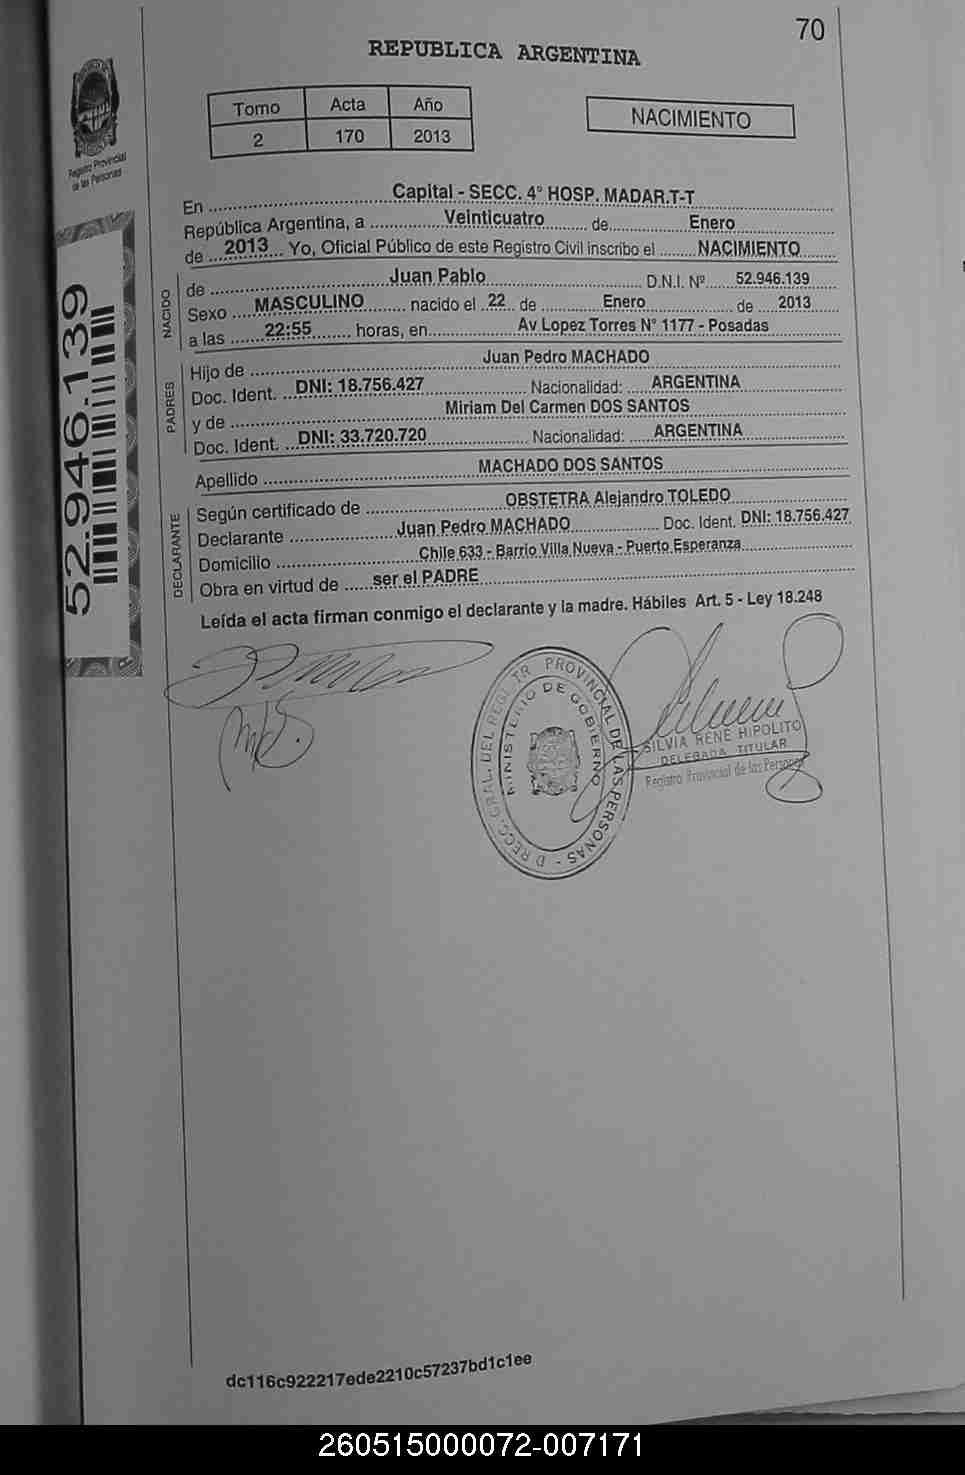 70
REPUBLICA ARGENTINA
Registro Provincial
de las Personas
Tomo Acta Año
2 170 2013
NACIMIENTO
En Capital - SECC. 4° HOSP. MADAR.T-T
República Argentina, a Veinticuatro de Enero
de 2013 Yo, Oficial Público de este Registro Civil inscribo el NACIMIENTO
NACIDO
de Juan Pablo D.N.I. Nº 52.946.139
Sexo MASCULINO nacido el 22 de Enero de 2013
a las 22:55 horas, en Av Lopez Torres N° 1177 - Posadas
PADRES
Hijo de Juan Pedro MACHADO
Doc. Ident. DNI: 18.756.427 Nacionalidad: ARGENTINA
y de Miriam Del Carmen DOS SANTOS
Doc. Ident. DNI: 33.720.720 Nacionalidad: ARGENTINA
Apellido MACHADO DOS SANTOS
DECLARANTE
Según certificado de OBSTETRA Alejandro TOLEDO
Declarante Juan Pedro MACHADO Doc. Ident. DNI: 18.756.427
Domicilio Chile 633 - Barrio Villa Nueva - Puerto Esperanza
Obra en virtud de ser el PADRE
Leída el acta firman conmigo el declarante y la madre. Hábiles Art. 5 - Ley 18.248
52.946.139
PROVINCIAL DE LAS PERSONAS
MINISTERIO DE GOBIERNO
SILVIA RENE HIPOLITO
DELEGADA TITULAR
Registro Provincial de las Personas
dc116c922217ede2210c57237bd1c1ee
260515000072-007171